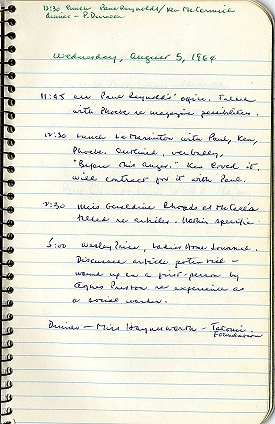 12:30 Lunch Paul Reynolds/Ken McCormick
Dinner - P. Duncan
Wednesday, August 5, 1964
11:45 Paul Reynolds' office. Talked
with Phoebe re magazine possibilities.
12:30 Lunch La Maritton with Paul, Ken,
Phoebe. Outlined, verbally,
"Before This Anger." Ken loved it,
will contract for it with Paul.
2:30 Miss Geraldine Rhoads at McCall's
talked re articles. Nothin specific
5:00 Wesley Price, Ladies Home Journal.
Discussed article potential -
wound up on a first-person by
Agnes Preston re experience as
a social worker.
Dinner - Miss Haynesworth -
Foundation